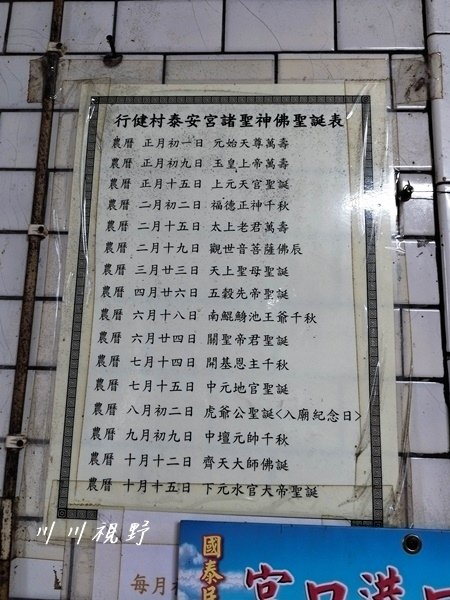 行健村泰安宮諸聖神佛聖誕表
農曆 正月初一日 元始天尊萬壽
農曆 正月初九日 玉皇上帝萬壽
農曆 正月十五日 上元天官聖誕
農曆 二月初二日 福德正神千秋
農曆 二月十五日 太上老君萬壽
農曆 二月十九日 觀世音菩薩佛辰
農曆 三月廿三日 天上聖母聖誕
農曆 四月廿六日 五穀先帝聖誕
農曆 六月十八日 南鯤鯓池王爺千秋
農曆 六月廿四日 關聖帝君聖誕
農曆 七月十四日 開基恩主千秋
農曆 七月十五日 中元地官聖誕
農曆 八月初二日 虎爺公聖誕<入廟紀念日>
農曆 九月初九日 中壇元帥千秋
農曆 十月十二日 齊天大師佛誕
農曆 十月十五日 下元水官大帝聖誕
川川視野
國泰
宮口港口
每月